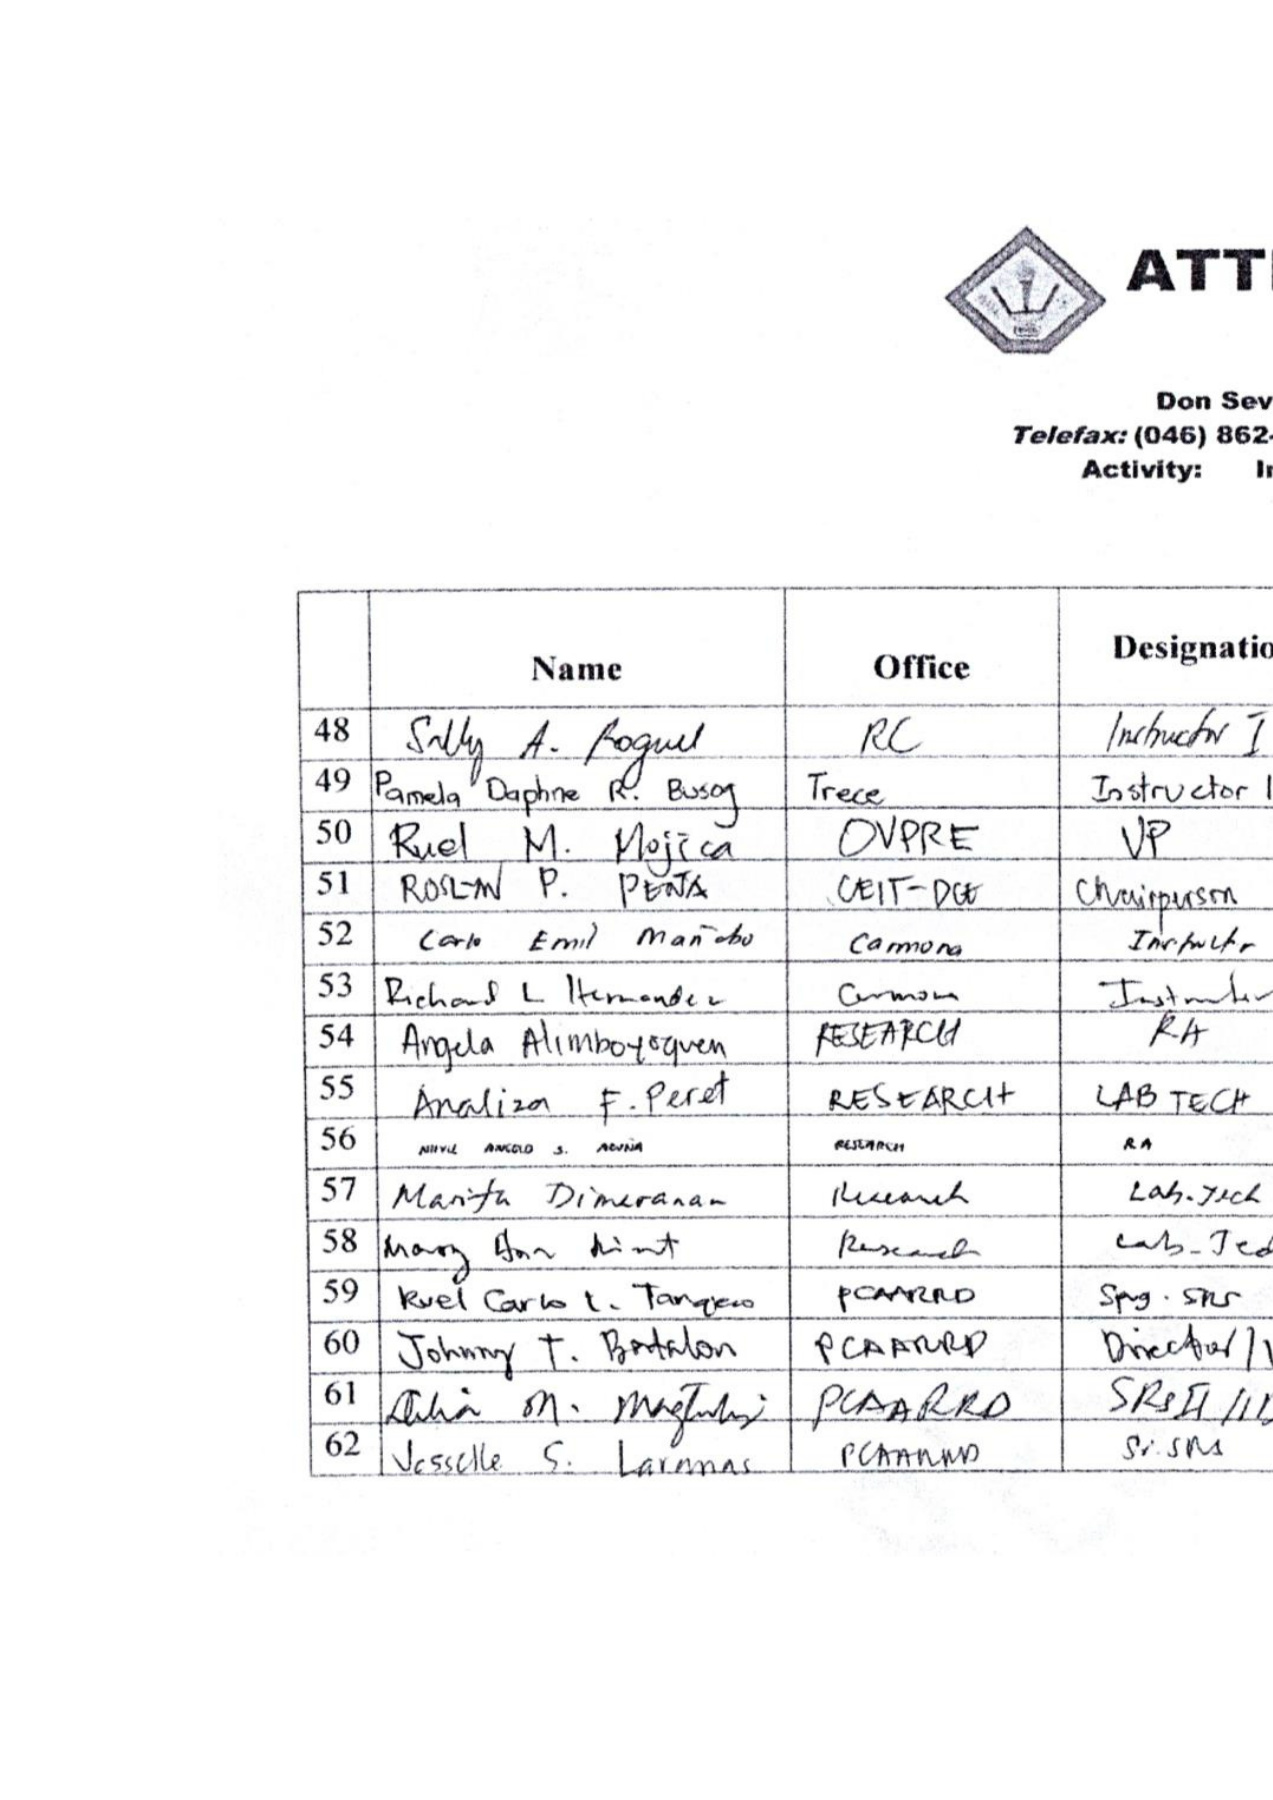 ATT
Don Sev
Telefax: (046) 862-
Activity: In
Name Office Designatio
48 Sally A. Roguel RC Instructor I
49 Pamela Daphne R. Busog Trece Instructor I
50 Ruel M. Mojica OVPRE VP
51 ROSLYN P. PEÑA CEIT-DCE Chairperson
52 Carlo Emil Mañabo Carmona Instructor
53 Richard L Hernandez Carmona Instructor
54 Angela Alimboyoguen RESEARCH RA
55 Analiza F. Peret RESEARCH LAB TECH
56 ANGELO S. ACUÑA RESEARCH RA
57 Marita Dimeranan Research Lab. Tech
58 Mary Ann Research Lab. Tec
59 Ruel Carlo L. Tangero PCAARRD SRS
60 Johnny T. Batalon PCAARRD Director/
61 M. PCAARRD SRS II /
62 Jesselle S. Laranas PCAARRD Sr. SRS